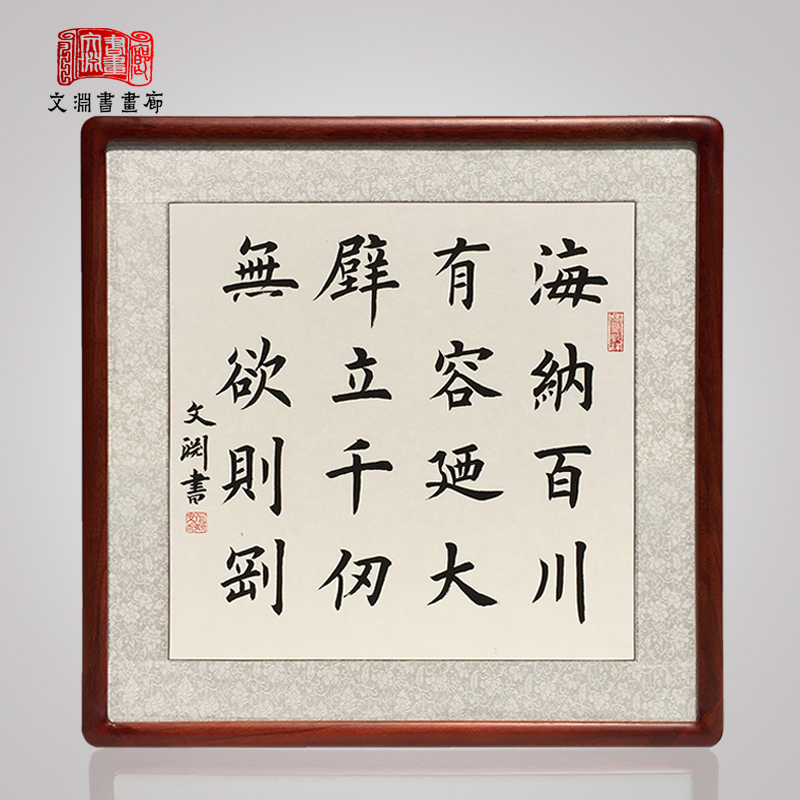 文淵書畫廊
海納百川
有容廼大
壁立千仞
無欲則剛
文淵書